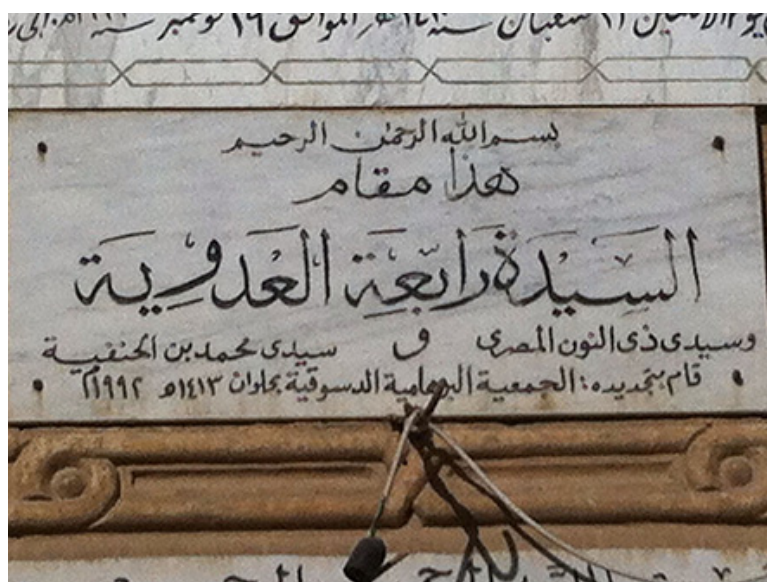 يوم الاثنين ٢١ شعبان سنة الموافق ١٦ نوفمبر سنة
بسم الله الرحمن الرحيم
هذا مقام
السيدة رابعة العدوية
وسيدى ذى النون المصرى و سيدى محمد بن الحنفية
قام بتجديده: الجمعية البرهامية الدسوقية بحلوان ١٤١٣هـ ١٩٩٢م